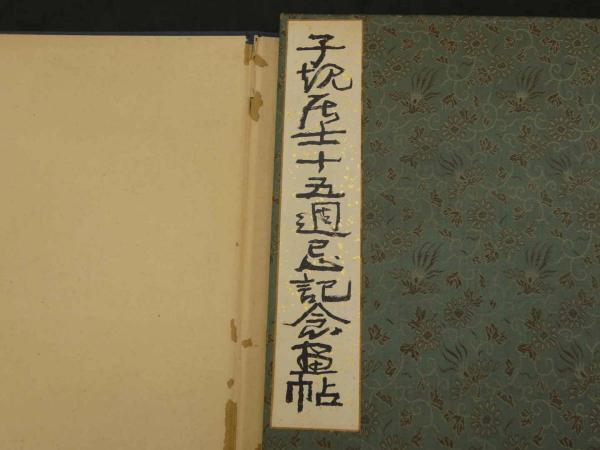 子規居士十五週忌記念畫帖